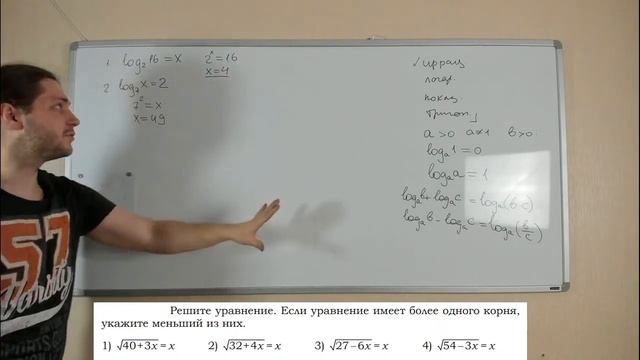 1. log₂16 = x 2ˣ = 16
x = 4
2. log₇x = 2
7² = x
x = 49
✓ иррац
логар.
показ
тригон
a > 0 a ≠ 1 b > 0
logₐ1 = 0
logₐa = 1
logₐb + logₐc = logₐ(b·c)
logₐb − logₐc = logₐ(b/c)
57
Varsity
Решите уравнение. Если уравнение имеет более одного корня,
укажите меньший из них.
1) √40+3x = x 2) √32+4x = x 3) √27−6x = x 4) √54−3x = x